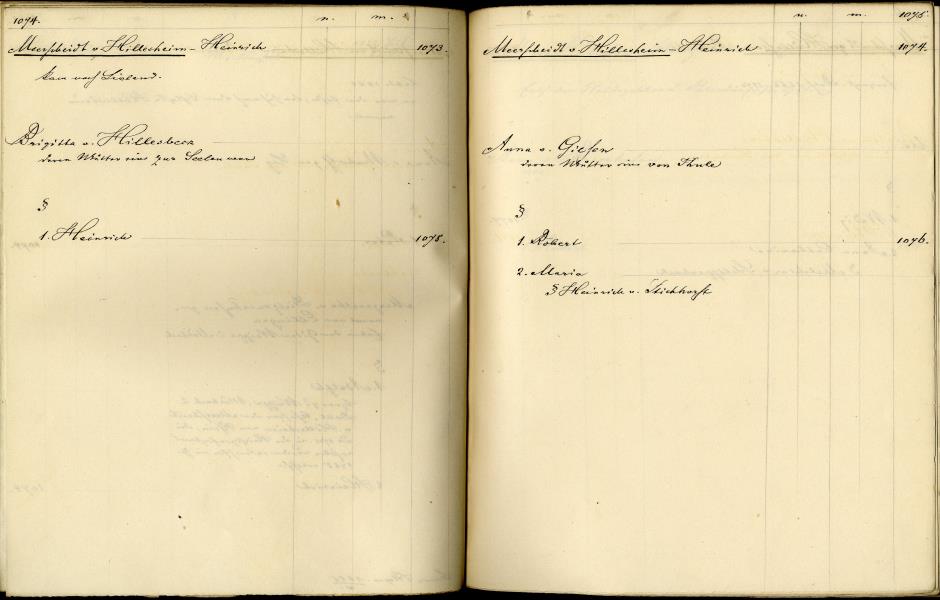 1074.
n. m.
Meerscheidt v Hillesheim - Heinrich 1073.
kam nach Livland.
Brigitta v. Hillesbeck
deren Mutter eine zur Seelen war
§
1. Heinrich 1075.
n. m. 1075.
Meerscheidt v Hillesheim - Heinrich 1074.
Anna v. Gilsen
deren Mutter eine von Thule
§
1. Robert 1076.
2. Maria
§ Heinrich v. Stichhorst